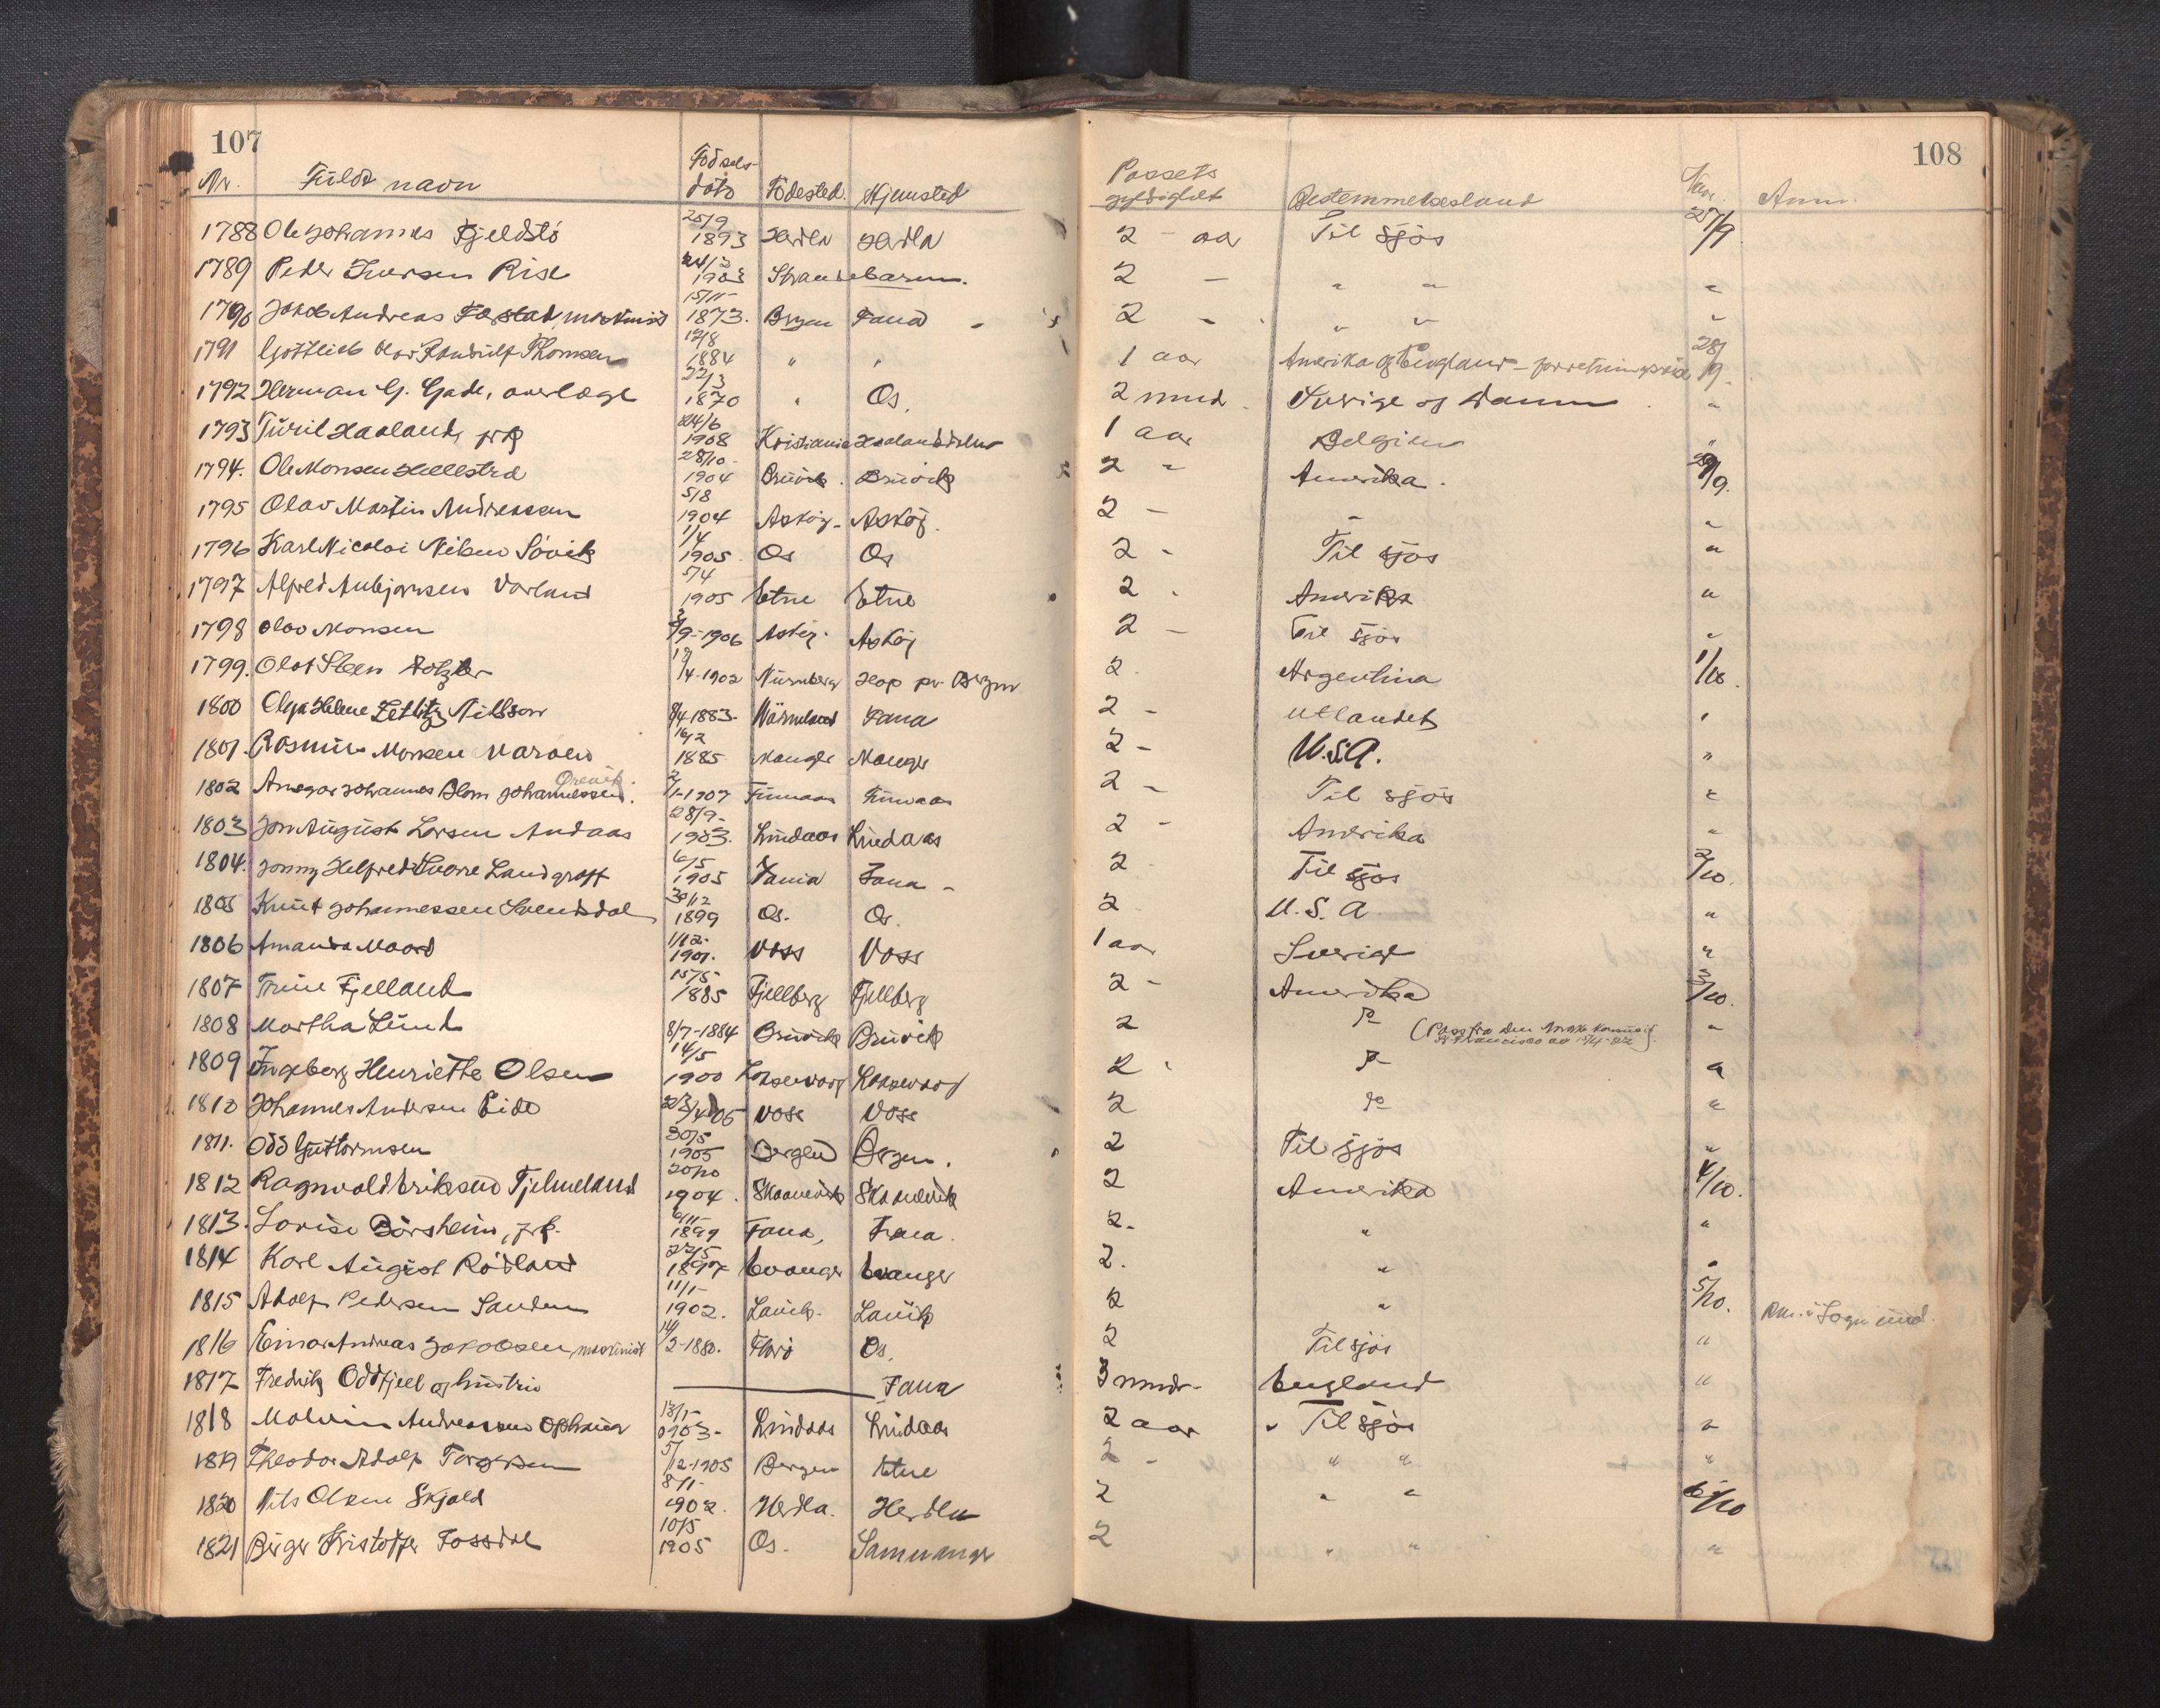 107
108
Nr. Fuldt navn Fødsels- dato Fødested. Hjemsted Passets gyldighet Bestemmelsesland Naar. Anm.
1788 Ole Johannes Fjeldstö 25/9 1893 Herdla Herdla 2 - aar Til sjøs 27/9
1789 Peder Iversen Rise 1903 Strandebarm. 2 - " " "
1790 Jakob Andreas maskinist 15/11 1873. Bergen Fana 2 - " " "
1791 Gottlieb Olav Thomsen 12/8 1884 " " 1 aar Amerika og England - forretningsreise 28/9
1792 Herman G. Gade, overlæge 22/3 1870 " Os. 2 mnd. Sverige og Danm "
1793 Turil Haaland, frk 24/6 1908 Kristiania 1 aar Belgien "
1794. Ole Monsen 28/10 1904 Bruvik. Bruvik 2 " Amerika. 29/9.
1795 Olav Martin Andreassen 5/8 1904 Askøy - Askøy. 2 - - "
1796 Karl Nicolai Nilsen Søvik 1/4 1905 Os Os 2 - Til sjøs "
1797 Alfred Anbjørnsen Varland 5/4 1905 Etne Etne 2 . Amerika "
1798 Olav Monsen /9-1906 Askøy. Askøy 2 - Til sjøs "
1799. Olaf Steen /4-1902 Nürnberg Hop pr. Bergen 2. Argentina 1/10.
1800 Olga Helene Zetlitz Nilsson /4 1883- Wärmland Fana 2 - Utlandet "
1801. Rasmus Monsen 16/2 1885 Manger Manger 2 - U.S.A. "
1802 Ansgar Johannes Blom Johannessen. /1-1907 Finnaas Finnaas 2 - Til sjøs "
1803 Jon August Larsen Andaas 28/9- 1903. Lindaas Lindaas 2 - Amerika "
1804. Jonny Helfred Sverre Landgraff 6/5 1905 Fana Fana - 2 Til sjøs 2/10.
1805 Knut Johannessen Svendsdal 30/12 1899 Os. Os. 2 U.S.A "
1806 Amanda 1/12- 1901. Voss Voss 1 aar Sverige "
1807 Trine Fjelland 15/5- 1885 Fjellberg Fjellberg 2 - Amerika 3/10.
1808 Martha Lund 8/7-1884 Bruvik Bruvik 2 (Pass fra den norske "
1809 Ingeborg Henriette Olsen 14/5 1900 2 . "
1810 Johannes Andersen Eide 05 Voss Voss 2 "
1811. Odd Guttormsen 30/5 1905 Bergen Bergen. 2 Til sjøs "
1812 Ragnvald Eriksen Tjelmeland 20/10 1904. Skaanevik Skaanevik 2 Amerika 4/10.
1813. Lovise Børsheim, frk. 6/11- 1899 Fana, Fana. 2. " "
1814 Karl August Rödland 22/5 1897 Evanger Evanger 2. " "
1815 Adolf Pedersen Sanden 11/1- 1902. Lavik. Lavik 2 " 5/10.
1816 Einar Andreas Jakobsen, maskinist /2-1880. Florö Os. 2 Til sjøs "
1817 Fredrik Oddfjell og hustru Fana 3 mndr- England "
1818 Malvin Andreassen 13/1- 1903- Lindaas Lindaas 2 aar " Til sjøs "
1819 Theodor Adolf Torgersen 5/12-1905 Bergen Etne 2 - " " "
1820 Nils Olsen Skjold 8/1- 1902. Herdla. Herdla 2 " " 6/10
1821 Birger Kristoffer Fossdal 10/5 1905 Os. Samnanger 2 " " "